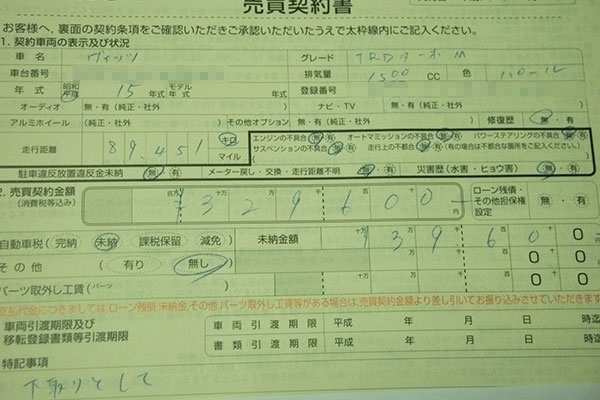 売買契約書
お客様へ、裏面の契約条項をご確認いただきご承認いただいたうえで太枠線内にご記入ください。
1. 契約車両の表示及び状況
車名 ヴィッツ グレード TRDターボM
車台番号 排気量 1500 CC 色 パール
年式 昭和 平成 15 年式 モデル 年式 登録番号
オーディオ 無・有(純正・社外) ナビ・TV 無・有(純正・社外)
アルミホイール(純正・社外) その他オプション 無・有 修復歴 無・有
走行距離 89.451 キロ マイル エンジンの不具合 無・有 オートマミッションの不具合 無・有 パワーステアリングの不具合 無・有
サスペンションの不具合 無・有 走行上の不都合 無・有 (有の場合は不都合な箇所をご記入ください。)
駐車違反放置違反金未納 無・有 メーター戻し・交換・走行距離不明 無・有 災害歴(水害・ヒョウ害) 無・有
2. 売買契約金額 (消費税等込み) 百万 十万 万 千 百 十 円 329600 ローン残債・その他担保権設定 無・有
自動車税(完納 未納 課税保留 減免) 未納金額 十万 万 千 百 十 円 39600
その他(有り・無し) 十万 万 千 百 十 円 0
パーツ取外し工賃(パーツ 十万 万 千 百 十 円 0
支払代金につきましては、ローン残債、未納金、その他、パーツ取外し工賃等がある場合は、売買契約金額より差し引いてお振り込みさせていただきます
車両引渡期限及び 移転登録書類等引渡期限 車両引渡期限 平成 年 月 日 時迄
書類引渡期限 平成 年 月 日 時迄
特記事項
下取りとして